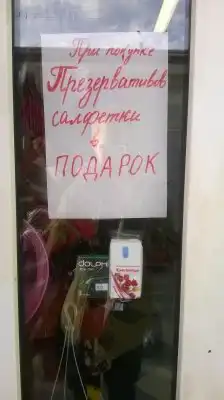 При покупке
Презервативов
салфетки
в
ПОДАРОК
DOLPHI